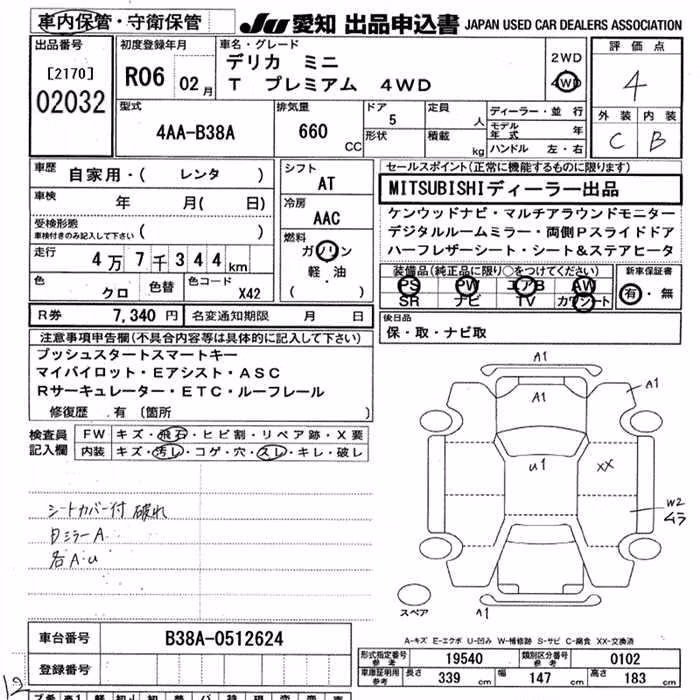 車内保管・守衛保管
JU 愛知 出品申込書 JAPAN USED CAR DEALERS ASSOCIATION
出品番号
[2170]
02032
初度登録年月
R06 02月
車名・グレード
デリカ ミニ
T プレミアム 4WD
2WD
4WD
評価点
4
外装 内装
C B
型式
4AA-B38A
排気量
660 CC
ドア
5
形状
定員
人
積載
kg
ディーラー・並行
モデル年式 年
ハンドル 左・右
車歴
自家用・( レンタ )
車検
年 月( 日)
受検形態
(車検付きのみ記入して下さい)
走行
4万7千344km
色
クロ
色替
色コード
X42
シフト
AT
冷房
AAC
燃料
ガソリン
軽・油
( )
セールスポイント(正常に機能するものに限ります)
MITSUBISHIディーラー出品
ケンウッドナビ・マルチアラウンドモニター
デジタルルームミラー・両側Pスライドドア
ハーフレザーシート・シート&ステアヒータ
装備品(純正品に限り○をつけてください)
PS PW エアB AW
SR ナビ TV カワシート
新車保証書
有・無
R券 7,340円 名変通知期限 月 日
後日品
保・取・ナビ取
注意事項申告欄(不具合内容等は具体的に記入して下さい)
プッシュスタートスマートキー
マイパイロット・Eアシスト・ASC
Rサーキュレーター・ETC・ルーフレール
修復歴 有 (箇所 )
検査員記入欄
FW キズ・飛石・ヒビ割・リペア跡・X要
内装 キズ・汚レ・コゲ・穴・スレ・キレ・破レ
シートカバー付 破れ
ミラーA
各A・U
A1
A1
A1
U1
XX
W2
ムラ
A1
スペア
A-キズ E-エクボ U-凹み W-補修跡 S-サビ C-腐食 XX-交換済
車台番号 B38A-0512624
登録番号
形式指定番号 参考 19540 類別区分番号 参考 0102
車庫証明用 参考 長さ 339 cm 幅 147 cm 高さ 183 cm
12